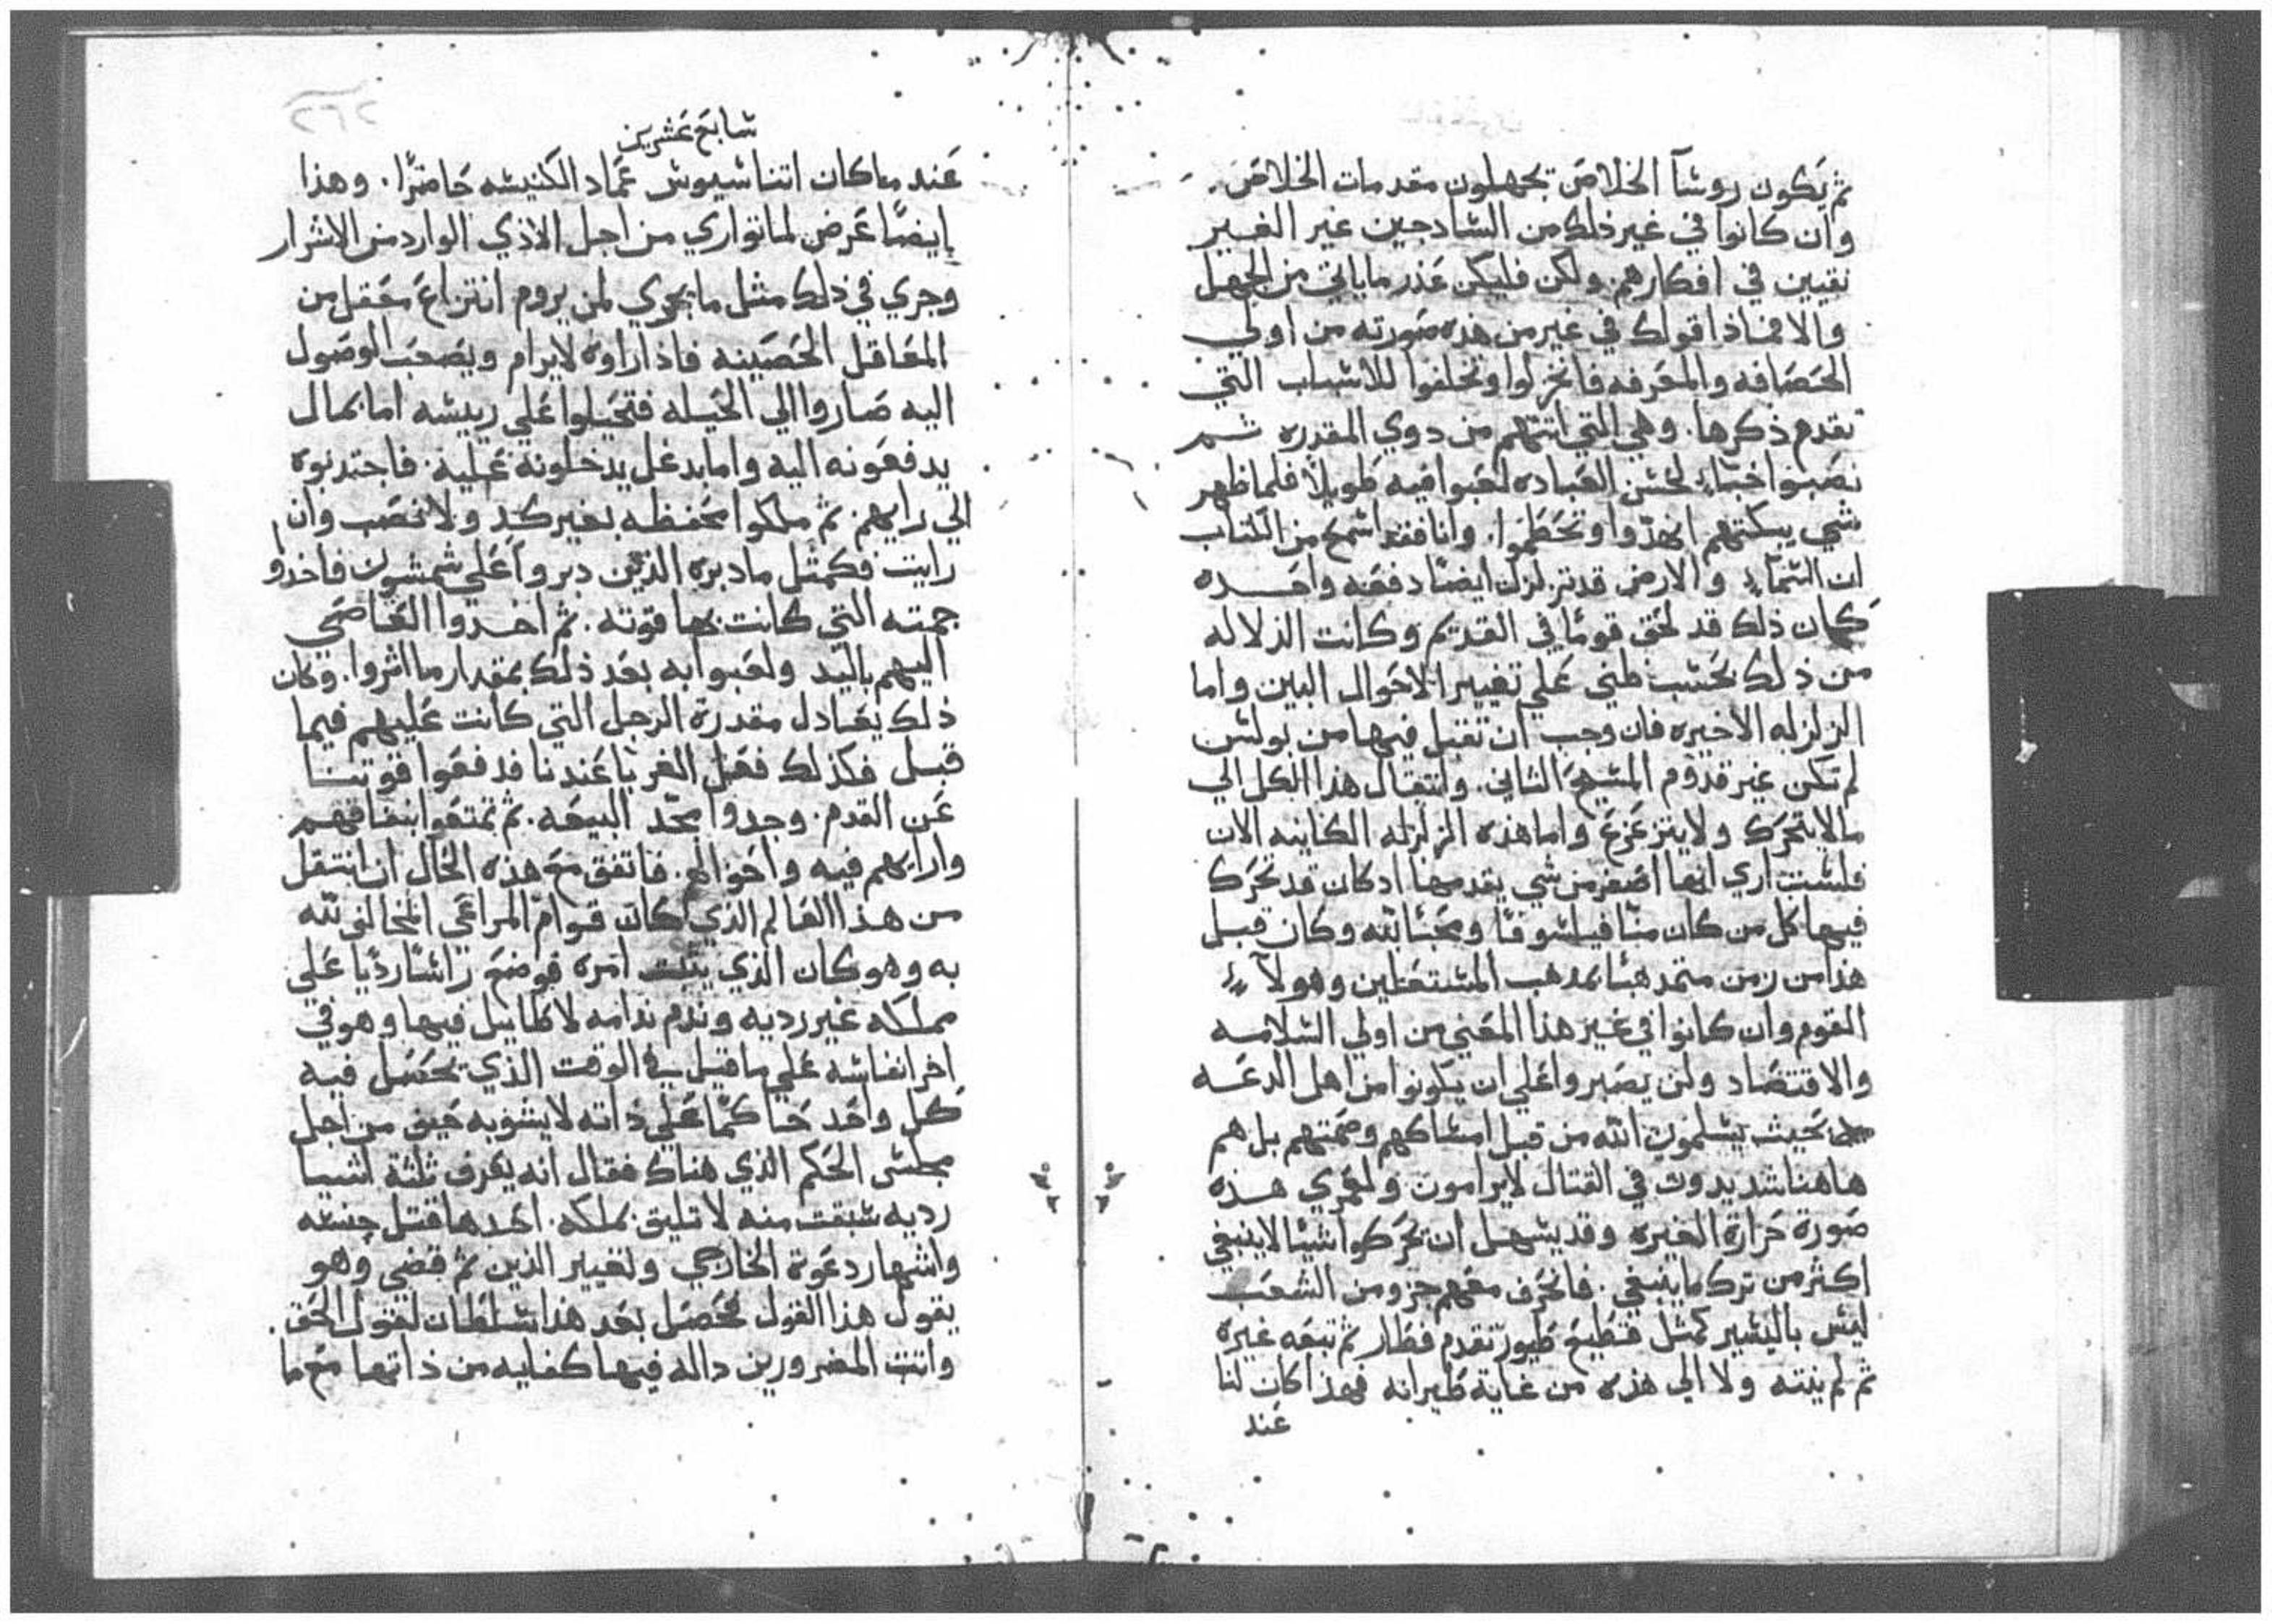 ثم يكون روسآ الخلاص يجهلون مقدمات الخلاص.
وان كانوا في غير ذلك من السادجين غير الغير
نقيين في افكارهم. ولكن فليكن عذر ما ياتي من الجهل
والا فماذا قولك في غير من هذه صورته من اولي
الحصافه والمعرفه فانخزلوا وتخلفوا للاسباب التي
تقدم ذكرها. وهي التي اتتهم من دوي المقدره ثم
نصبوا خباء لحسن العباده لعبوا فيه طويلاً فلما ظهر
شي يبكتهم انهدّوا وتحطموا. وانا فقد اسمع من الكتاب
ان السماء والارض قد تزلزلن ايضًا دفعه واحده
كمان ذلك قد لحق قومًا في القديم وكانت الزلاله
من ذلك بحسب ظني علي تغيير الاحوال البين واما
الزلزله الاخيره فان وجب ان تقبل فيها من بولس
لم تكن غير قدوم المسيح الثاني. وانتقال هذا الكل الي
ما لا يتحرك ولا يتزعزع واما هذه الزلزله الكاينه الان
فلست اري انها اصغر من شي يقدمها ادكان قد تحرك
فيها كل من كان منّا فيلسوفًا ومحبًا لله وكان قبل
هذا من زمن متمدهبًا بمدهب المستعلين وهولآء
القوم وان كانوا في غير هذا المعني من اولي السلامه
والاقتصاد ولن يصبروا علي ان يكونوا من اهل الدعه
بحيث يسلمون الله من قبل امساكهم وصمتهم بل هم
هاهنا شديدون في القتال لا يرامون ولعمري هذه
صورة حرارة الغيره وقد يسهل ان تحركوا شيئًا لا ينبغي
اكثر من ترك ما ينبغي. فانحرف معهم جزو من الشعب
ليس باليسير كمثل قطيع طيور تقدم فطار ثم تبعه غيره
ثم لم ينته ولا الي هذه من غاية طيرانه فهذا كان لنا
عند
سابع عشرين
٢٣٦
عند ما كان اتناسيوس عماد الكنيسه حاضرًا. وهذا
ايضًا عرض لما تواري من اجل الاذي الوارد من الاشرار
وجري في ذلك مثل ما يجري لمن يروم انتزاع معقل من
المعاقل الحصينه فاذا راوه لا يرام ويصعب الوصول
اليه صاروا الي الحيله فتحيلوا علي رييسه اما بمال
يدفعونه اليه واما بدغل يدخلونه عليه. فاجتدبوه
الي رايهم. ثم ملكوا محفظه بغير كد ولا نصب وان
رايت فكمثل ما دبره الذين دبروا علي شمشون فاخدوا
جمته التي كانت بها قوته. ثم اخدوا القاضي
اليهم باليد ولعبوا به بعد ذلك بمقدار ما اثروا. وكان
ذلك يعادل مقدرة الرجل التي كانت عليهم فيما
قبل فكذلك فعل الغربا عندنا فدفعوا قوتنا
عن القدم. وجدوا مجد البيعه. ثم تمتعوا بنفاقهم
وارايهم فيه واحوالهم. فاتفق مع هذه الحال ان انتقل
من هذا العالم الذي كان قوام المراعي المخالف لله
به وهو كان الذي يثبت امره فوضع راسًا رديًا علي
مملكه غير رديه وندم ندامه لا طايل فيها وهو في
اخر انفاسه علي ما قيل في الوقت الذي يحصل فيه
كل واحد حاكمًا علي ذاته لا يشوبه حيف من اجل
مجلس الحكم الذي هناك فقال انه يعرف ثلثة اشيا
رديه سبقت منه لا تليق بملكه. احدها قتل جنسه
واشهار دعوة الخارجي ولغيير الدين ثم قضي وهو
يقول هذا القول فحصل بعد هذا سلطان لقول الحق.
وانتت المضرورين داله فيها كفايه من ذاتها مع ما